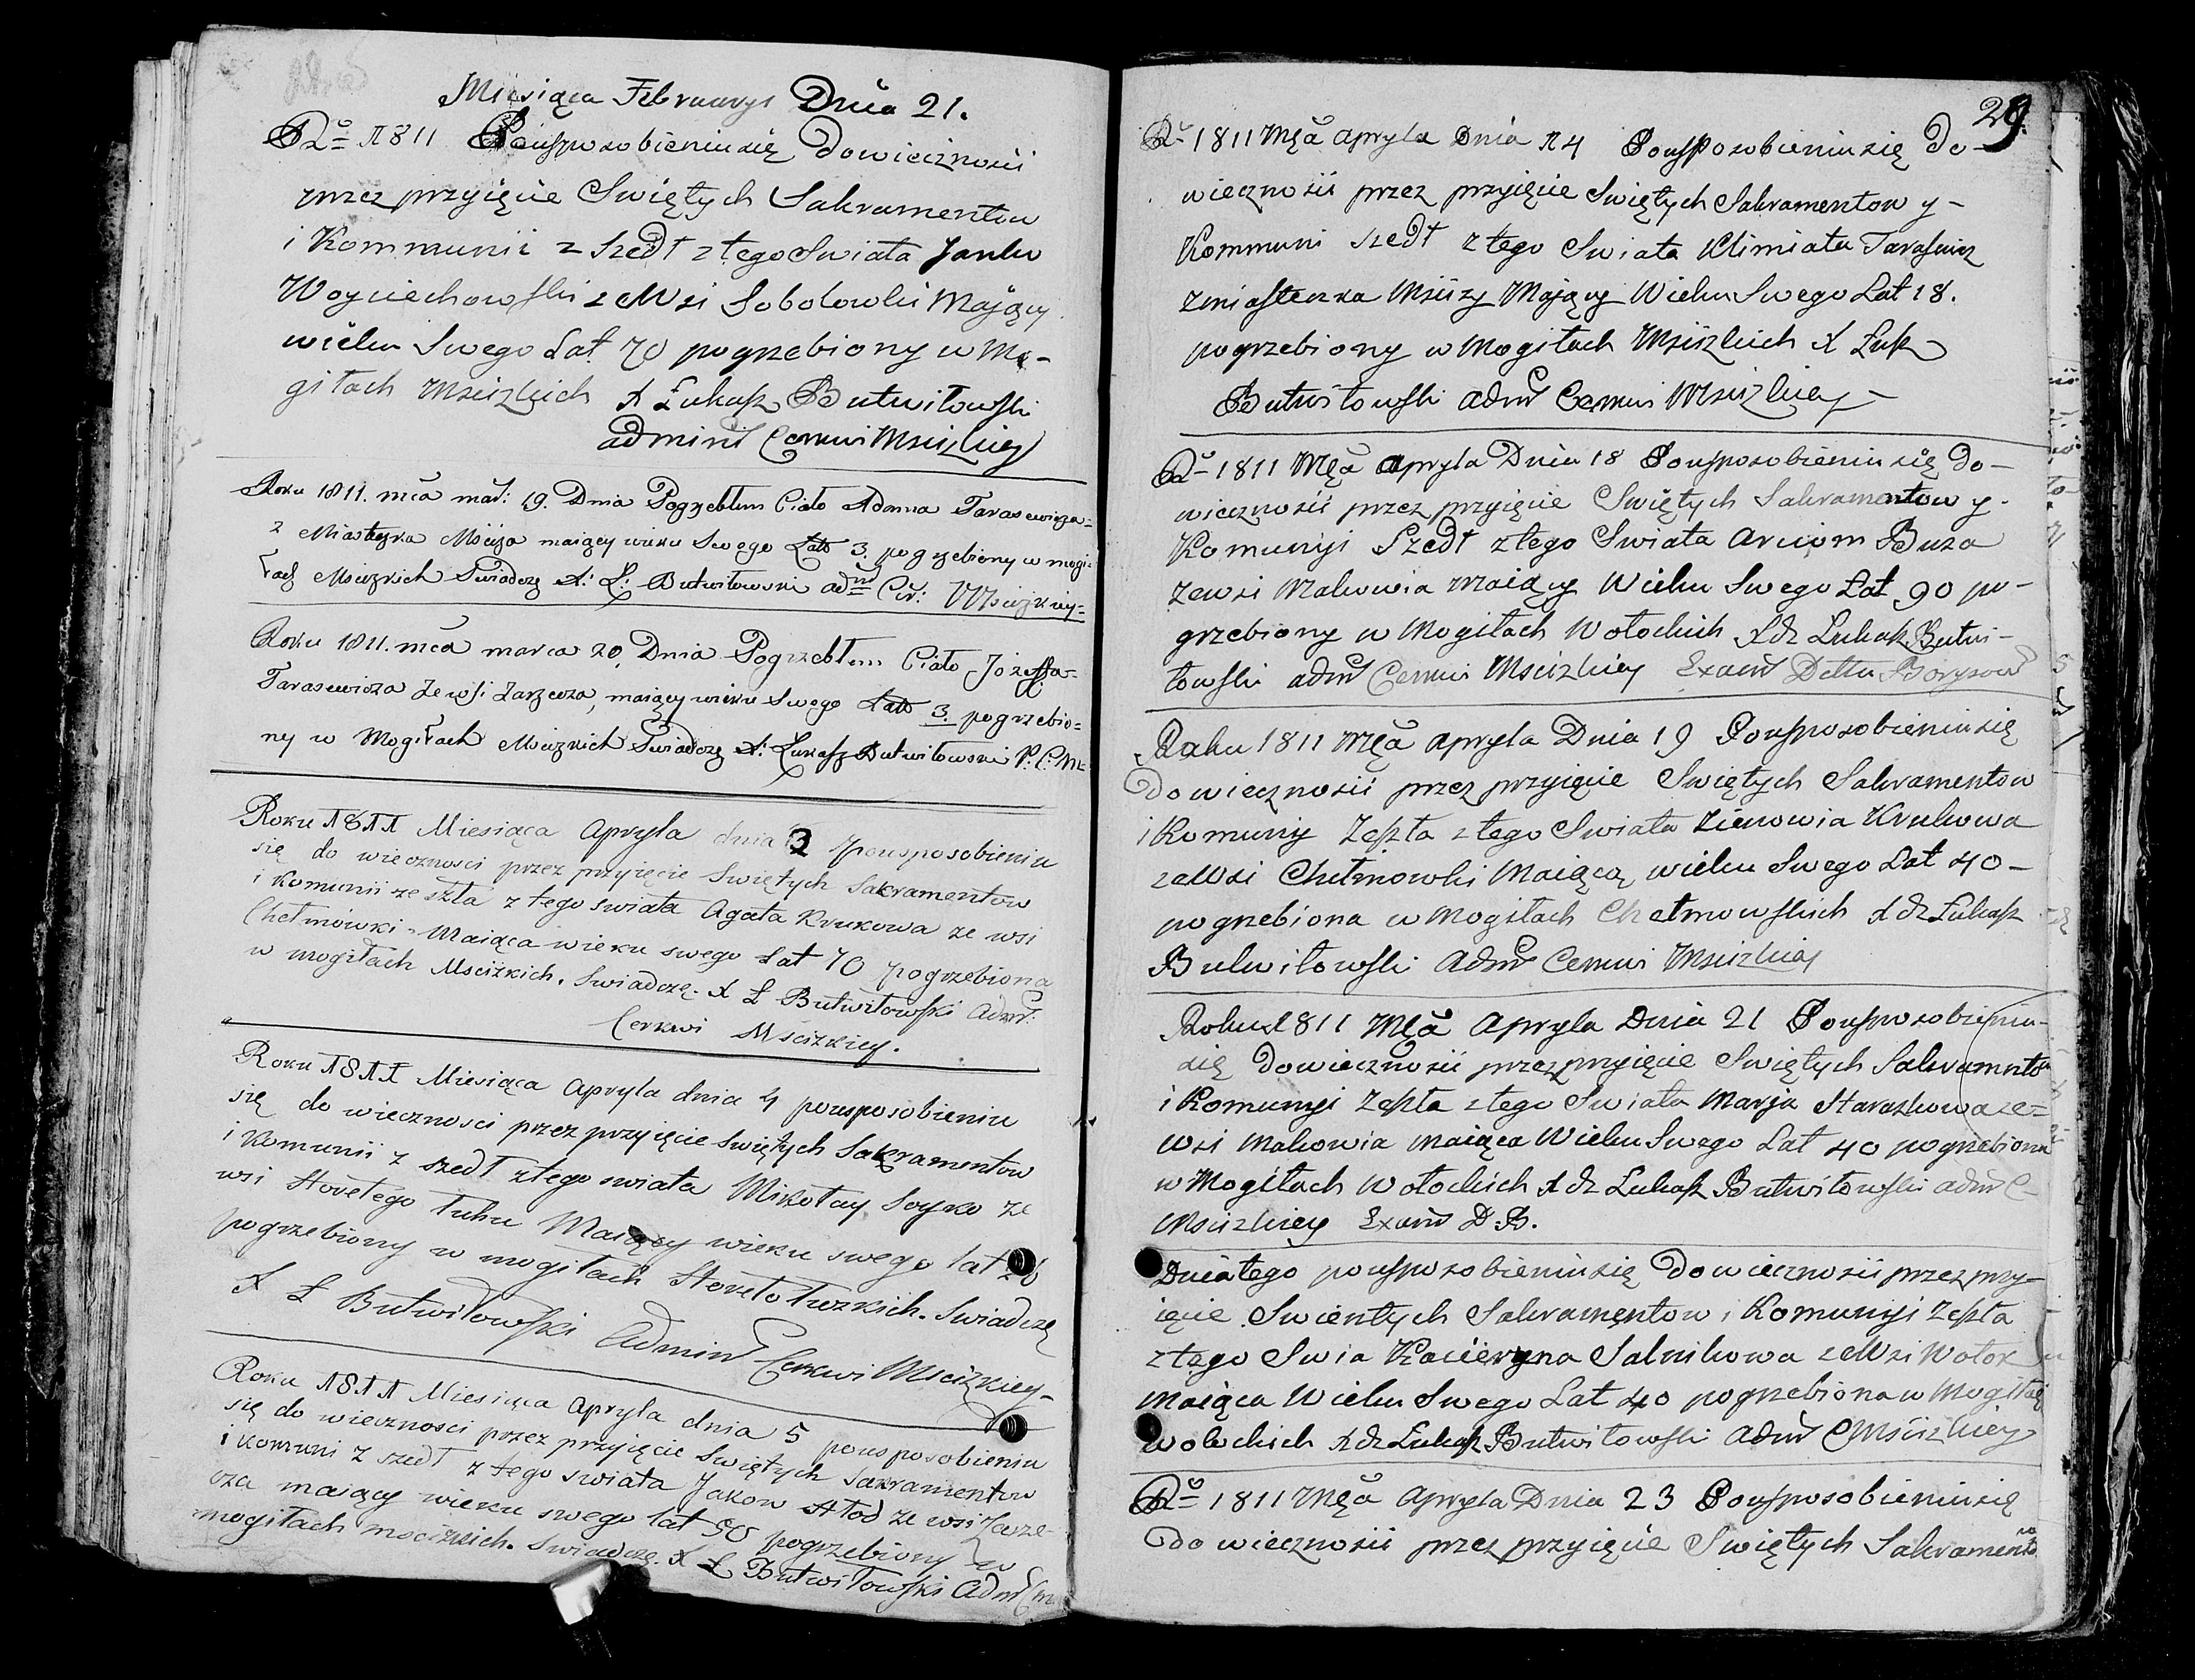 Miesiąca Februarys Dnia 21.
Ro 1811 Pousposobieniu się do wiecznosci
przez przyięcie Swiętych Sakramentow
i Kommunii z Szedł z tego Swiata Janko
Woyciechowski ze Wsi Sobolowki Mający
wieku Swego Lat 70 pogrzebiony w Mo-
giłach Mscizkich X Łukasz Butwiłowski
admini Cerkwi Mscizkiey
Roku 1811. mca mar: 19. Dnia Pogrzebłem Ciało Adama Tarasewicza-
z Miasteczka Mściża maiący wieku Swego Lato 3. pogrzebiony w mogi-
łach Mscizkich Swiadczę X: Ł: Butwiłowski adm Cer: Mscizkiey=
Roku 1811. mca marca 20 Dnia Pogrzebłem Ciało Jozefa-
Tarasewicza ze wsi Zarzecza, maiący wieku Swego Lato 3. pogrzebio=
ny w Mogiłach Mscizkich Swiadczę X: Łukasz Butwiłowski P: C: M:
Roku 1811 Miesiąca Apryla dnia 2 pousposobieniu
się do wiecznosci przez przyięcie Swiętych Sakramentow
i Komunii ze szła z tego swiata Agata Krukowa ze wsi
Chełmowki - Maiąca wieku swego Lat 70 pogrzebiona
w mogiłach Mscizkich. Swiadczę. X Ł Butwiłowski Adm:
Cerkwi Mscizkiey.
Roku 1811 Miesiąca Apryla dnia 4 pousposobieniu
się do wiecznosci przez przyięcie Swiętych Sakramentow
i Komunii z szedł z tego swiata Mikołay Soyko ze
wsi Horełego Ługu Maiący wieku swego lat
pogrzebiony w mogiłach Horełołuzkich. Swiadczę
X Ł Butwiłowski Admin Cerkwi Mscizkiey-
Roku 1811 Miesiąca Apryla dnia 5 pousposobieniu
się do wiecznosci przez przyięcie Swiętych Sakramentow
i komuni z szedł z tego swiata Jakow Hłod ze wsi Zarze-
cza maiący wieku swego lat 50 pogrzebiony w
mogiłach mscizkich. Swiadczę. X Ł Butwiłowski Adm
29.
Ro 1811 Mca Apryla Dnia 14 Pousposobieniu się Do-
wiecznosii przez przyięcie Swiętych Sakramentow y-
Kommuni szedł z tego Swiata Klimiata Tarasewicz
z miasteczka Msiizy Maiący Wieku Swego Lat 18.
pogrzebiony w Mogiłach Msiizkich X Łuk
Butwiłowski adm Cerkwi Mscizkiey-
Ro 1811 Mca Apryla Dnia 18 Pousposobieniu się do-
wiecznosii przez przyięcie Swiętych Sakramentow y-
Komunyi Szedł z tego Swiata Arciom Buza
ze wsi Makowia Maiący Wieku Swego Lat 90 po-
grzebiony w Mogiłach Wołockich X dz Łukasz Butwi-
łowski adm Cerkwi Mscizkiey Exam Dettu Borysow
Roku 1811 Mca Apryla Dnia 19 Pousposobieniu się
do wiecznosii przez przyięcie Swiętych Sakramentow
i Komuniy Zeszła z tego Swiata Zienowia Krukowa
ze Wsi Chełmowki Maiąca wieku Swego Lat 40-
pogrzebiona w Mogiłach Chełmowskich X dz Łukasz
Butwiłowski Adm Cerkwi Mscizkiey
Roku 1811 Mca Apryla Dnia 21 Pousposobieniu-
się Do wiecznosii przez przyięcie Swiętych Sakramnto
i Komunyi Zeszła z tego Swiata Marja Haraszkowa ze=
wsi Makowia Maiąca Wieku Swego Lat 40 pogrzebiona
w Mogiłach Wołockich X dz Łukasz Butwiłowski adm C-
Mscizkiey Exam D B.
Dnia tego pousposobieniu się Do wiecznosii przez przy-
ięcie Swientych Sakramentow i Komunyi Zeszła
z tego Swia Kacieryna Salnikowa ze Wsi Wołok
Maiąca Wieku Swego Lat 40 pogrzebiona w Mogiłach
wołockich X dz Łukasz Butwiłowski Adm C Mscizkiey
Ro 1811 Mca Apryla Dnia 23 Pousposobieniu się
do wiecznosii przez przyięcie Swiętych Sakramento